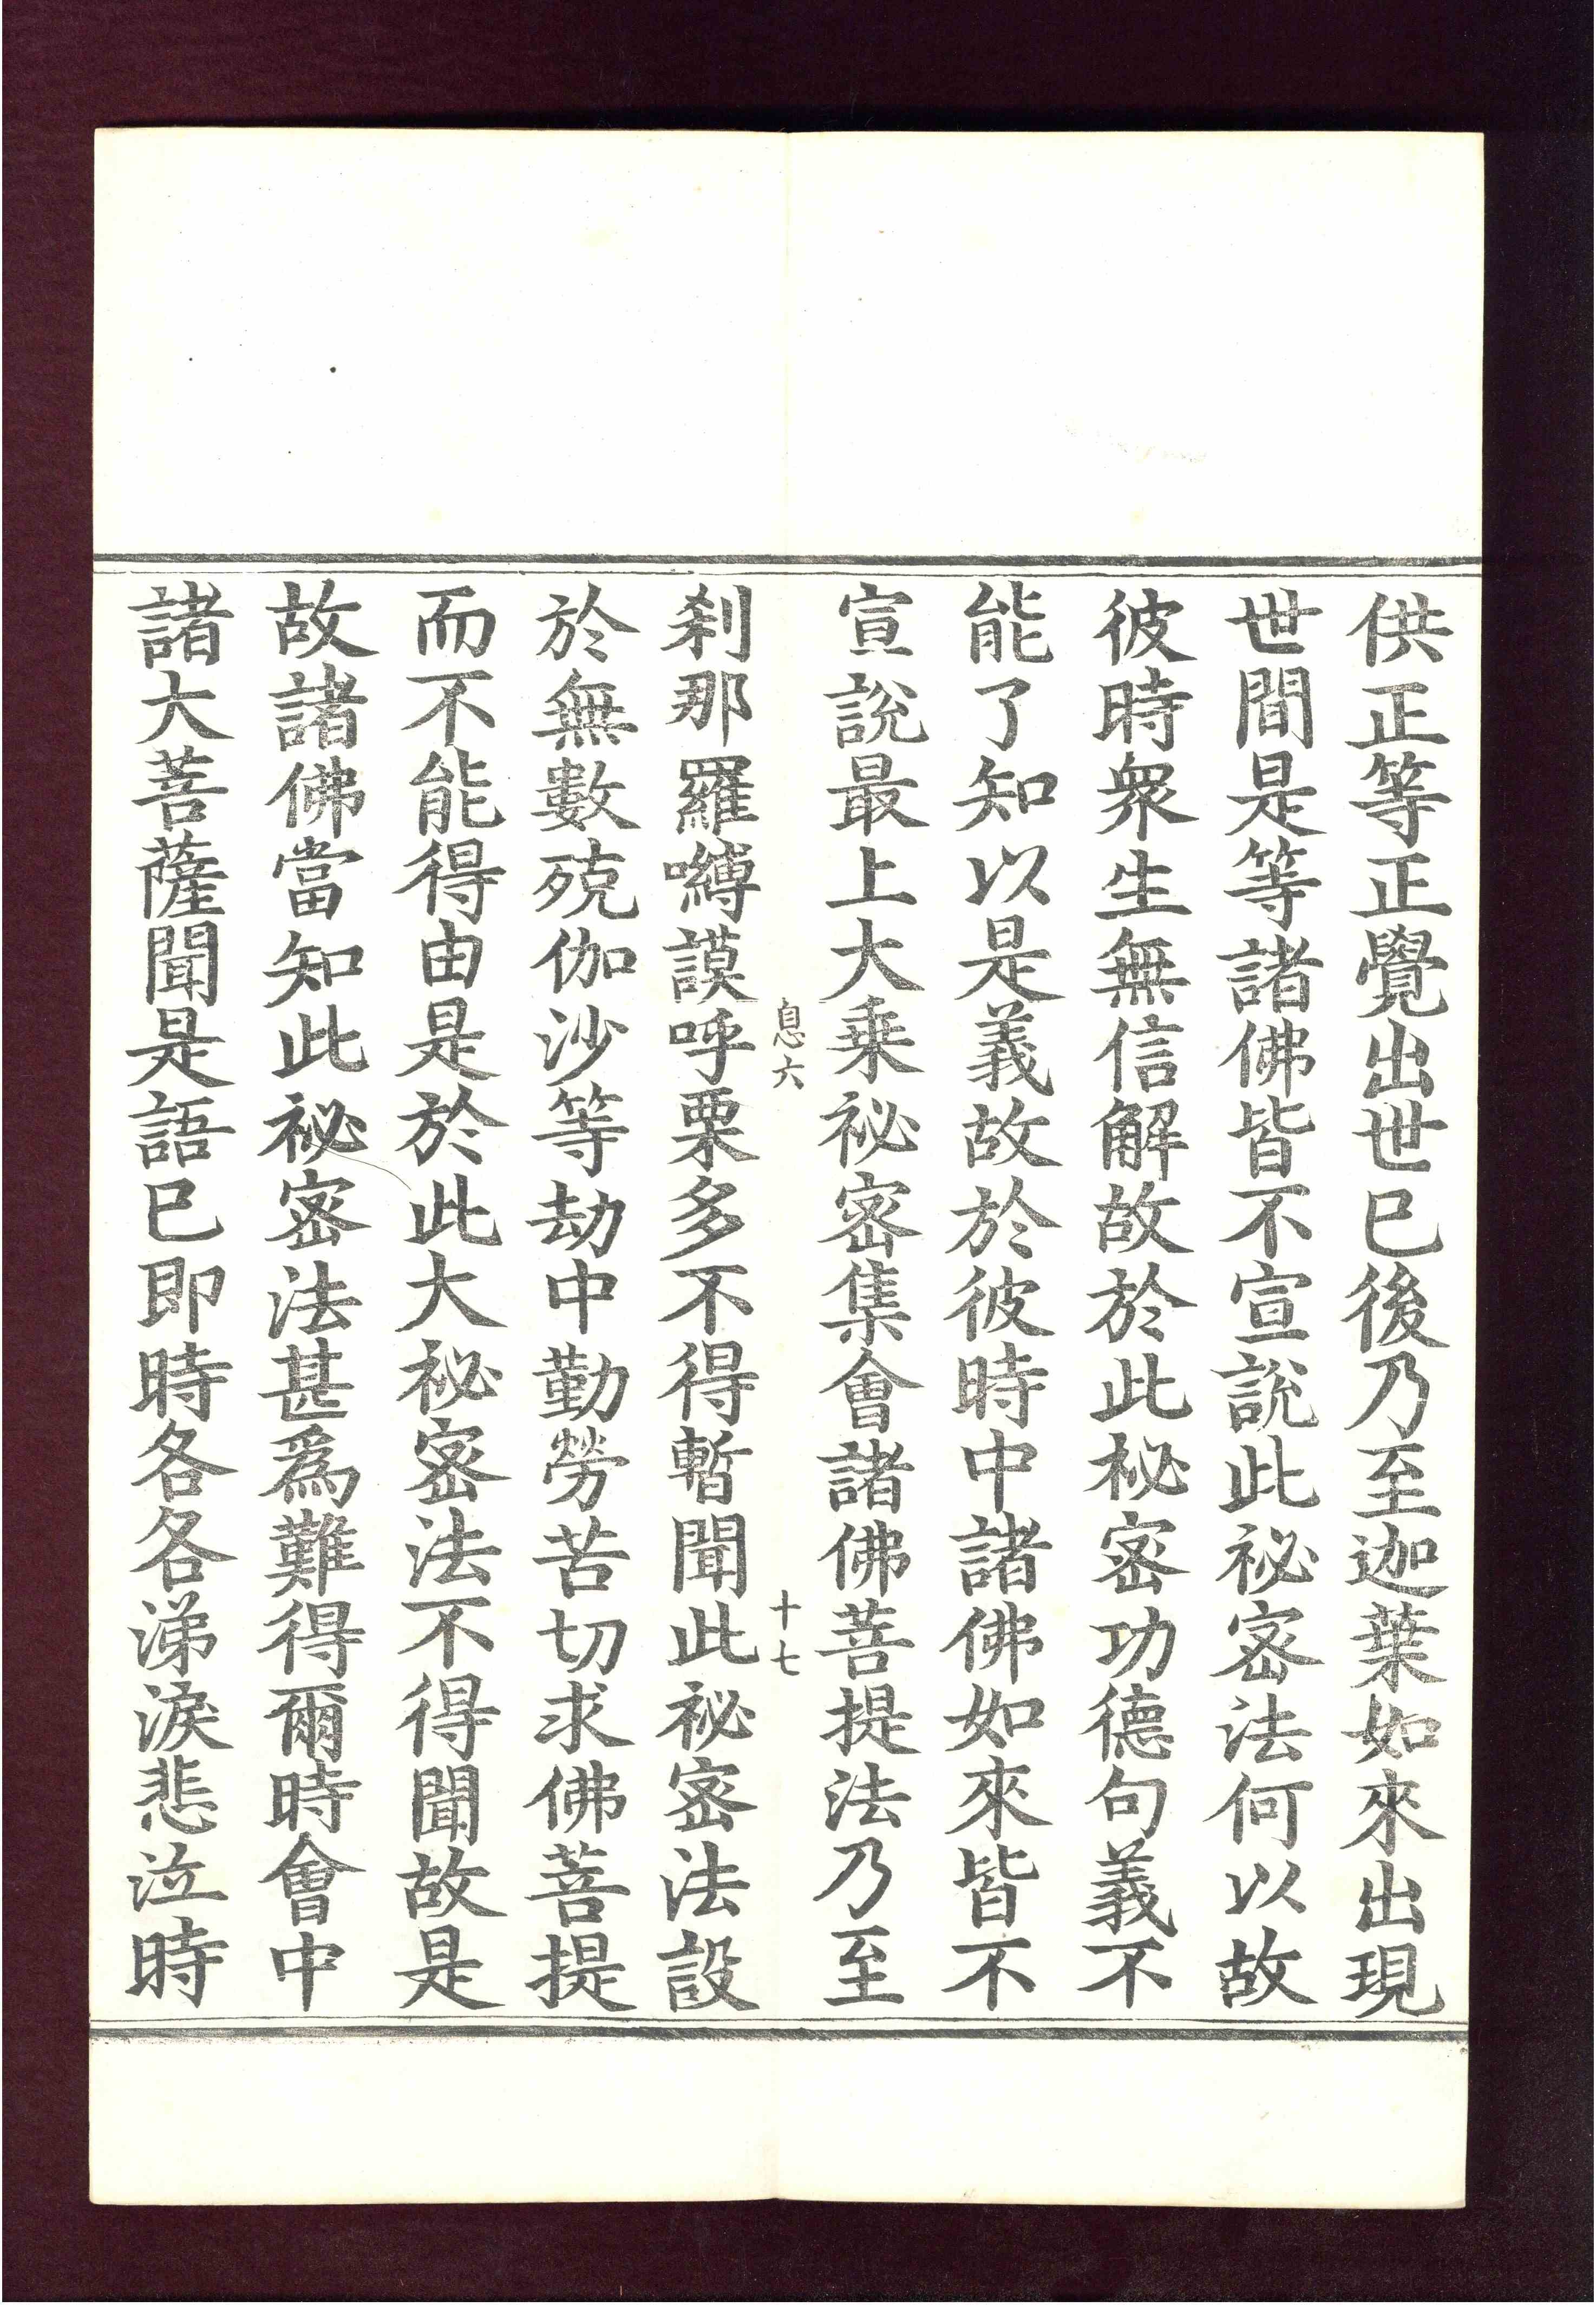 供正等正覺出世已後乃至迦葉如來出現
世間是等諸佛皆不宣說此祕密法何以故
彼時衆生無信解故於此秘密功德句義不
能了知以是義故於彼時中諸佛如來皆不
宣說最上大乗祕密集會諸佛菩提法乃至
息六
十七
刹那羅嚩謨呼栗多不得暫聞此祕密法設
於無數殑伽沙等劫中勤勞苦切求佛菩提
而不能得由是於此大祕密法不得聞故是
故諸佛當知此祕密法甚爲難得爾時會中
諸大菩薩聞是語已即時各各涕淚悲泣時